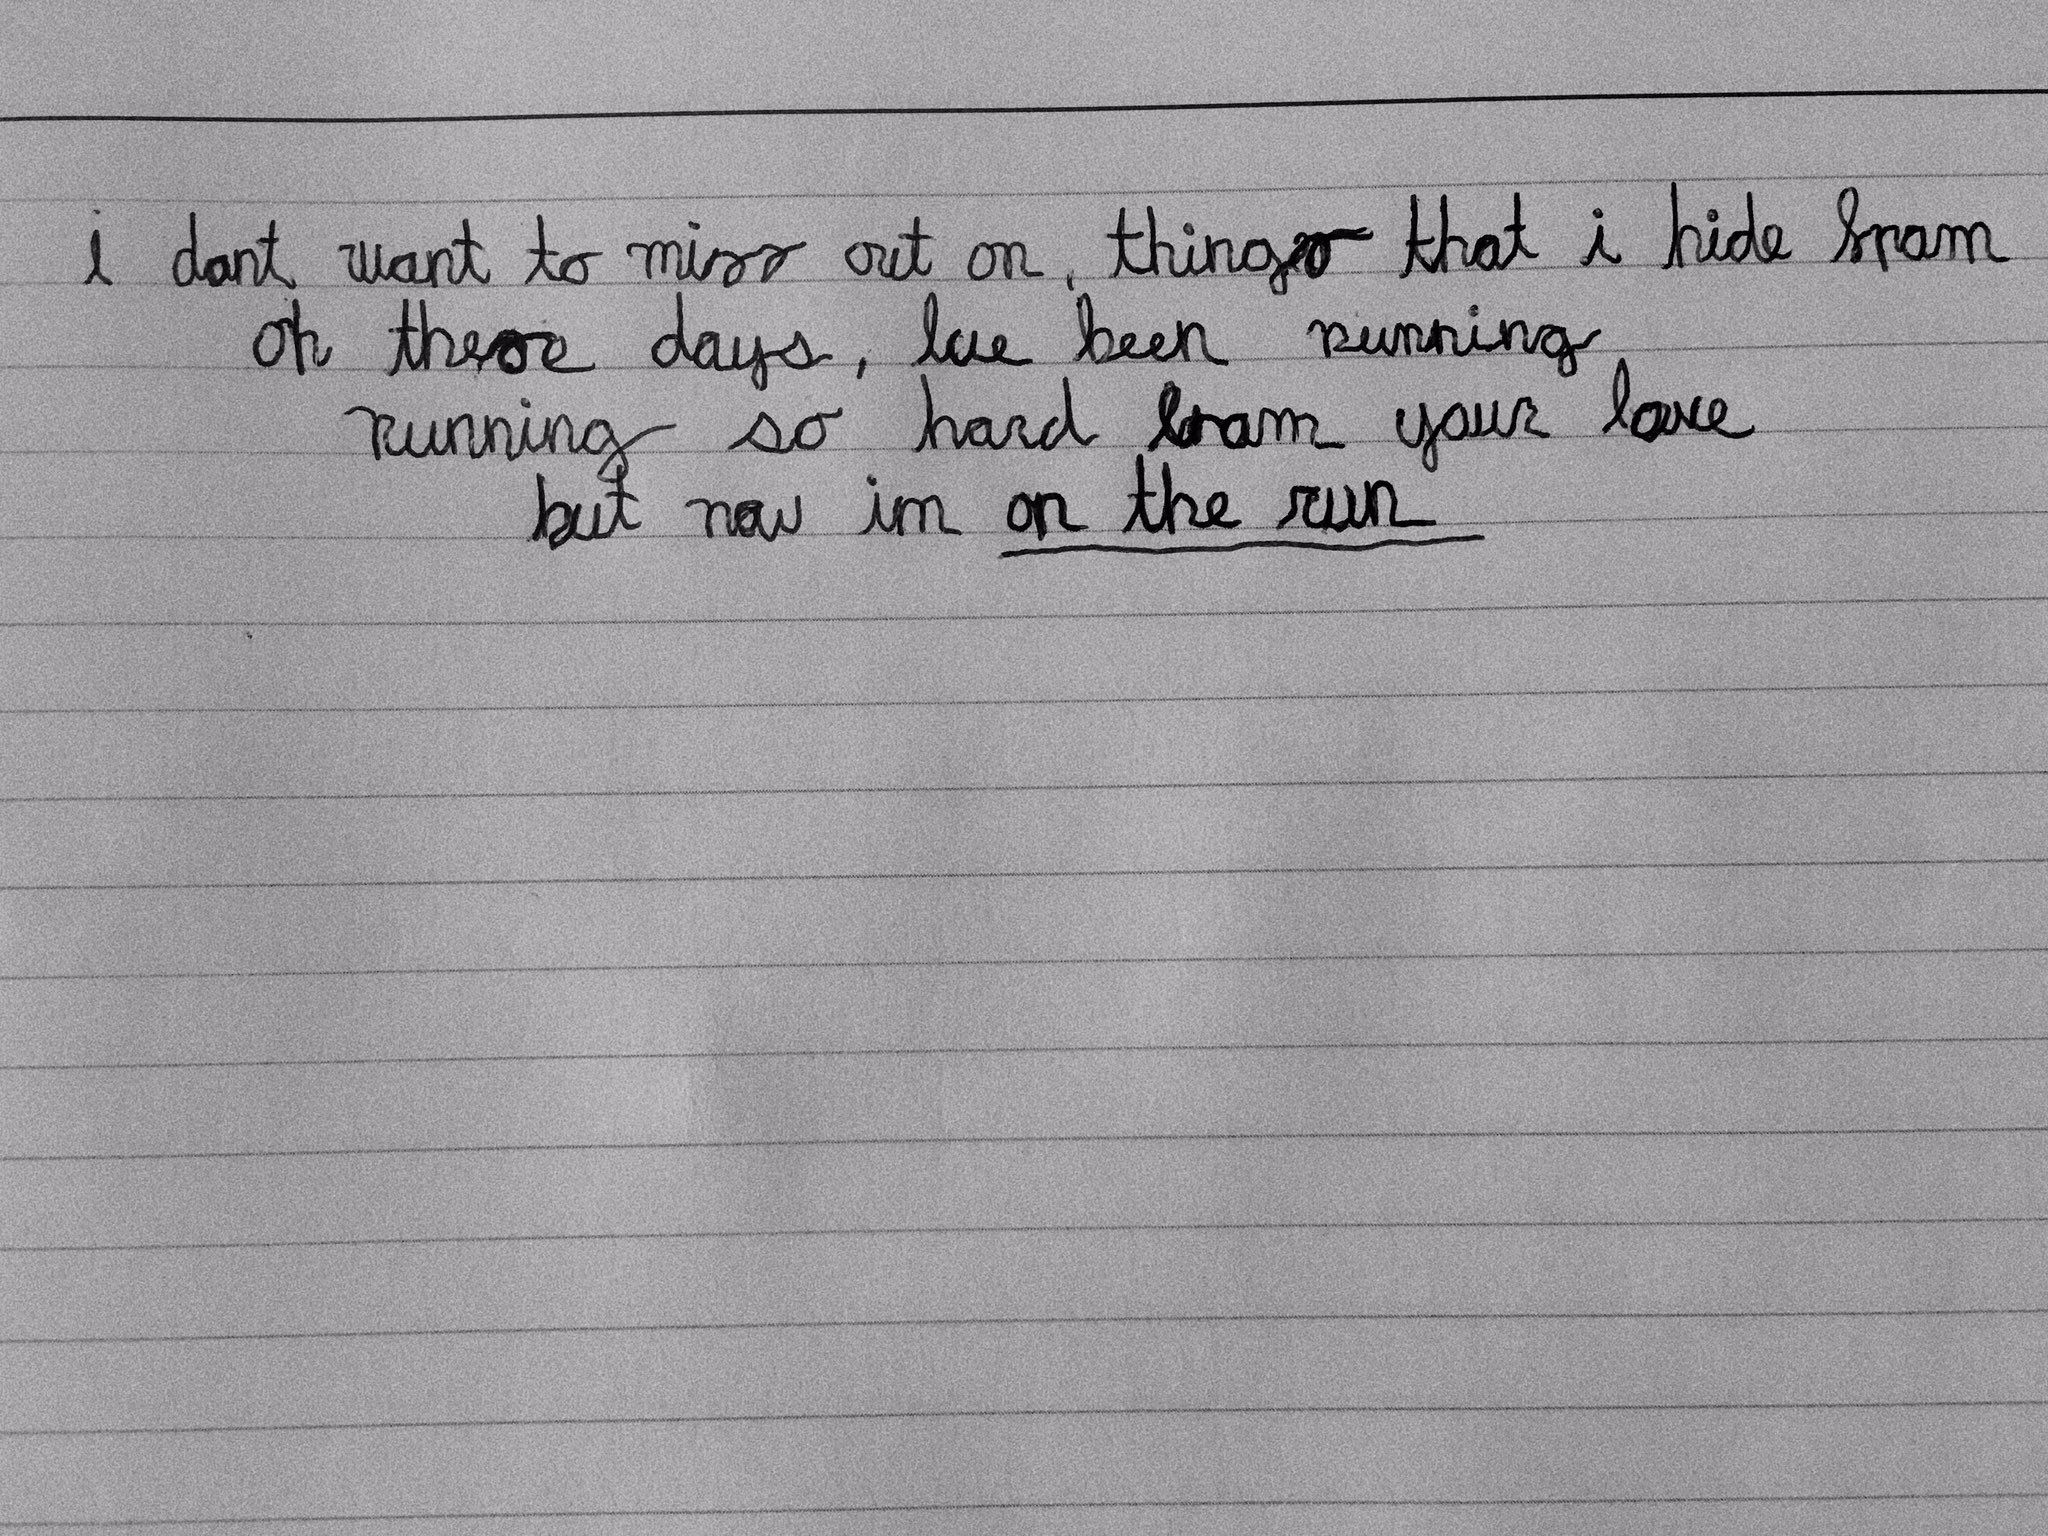 i dont want to miss out on, things that i hide from
oh these days, ive been running
running so hard from your love
but now im on the run